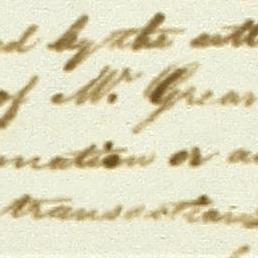 by the
of Mr. Grear
mation or a
transactions